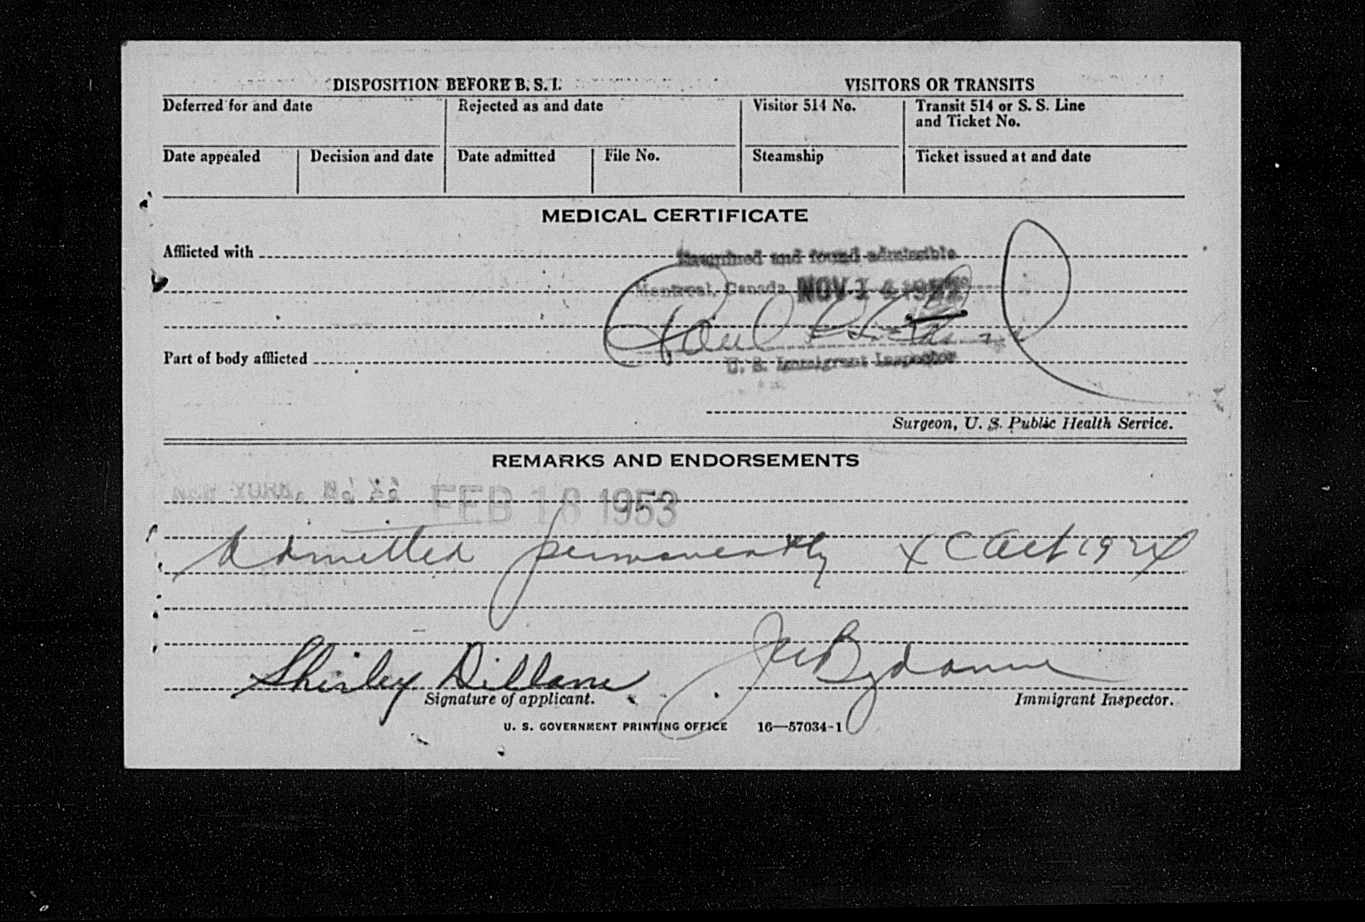 DISPOSITION BEFORE B. S. I. VISITORS OR TRANSITS
Deferred for and date Rejected as and date Visitor 514 No. Transit 514 or S. S. Line and Ticket No.
Date appealed Decision and date Date admitted File No. Steamship Ticket issued at and date
MEDICAL CERTIFICATE
Afflicted with
Examined and found admissible
Montreal, Canada NOV 14 1952
Paul
Part of body afflicted
U. S. Immigrant Inspector
Surgeon, U. S. Public Health Service.
REMARKS AND ENDORSEMENTS
NEW YORK, FEB 18 1953
Admitted permanently Act 1924
Shirley Dillane
Signature of applicant. Immigrant Inspector.
U. S. GOVERNMENT PRINTING OFFICE 16—57034-1